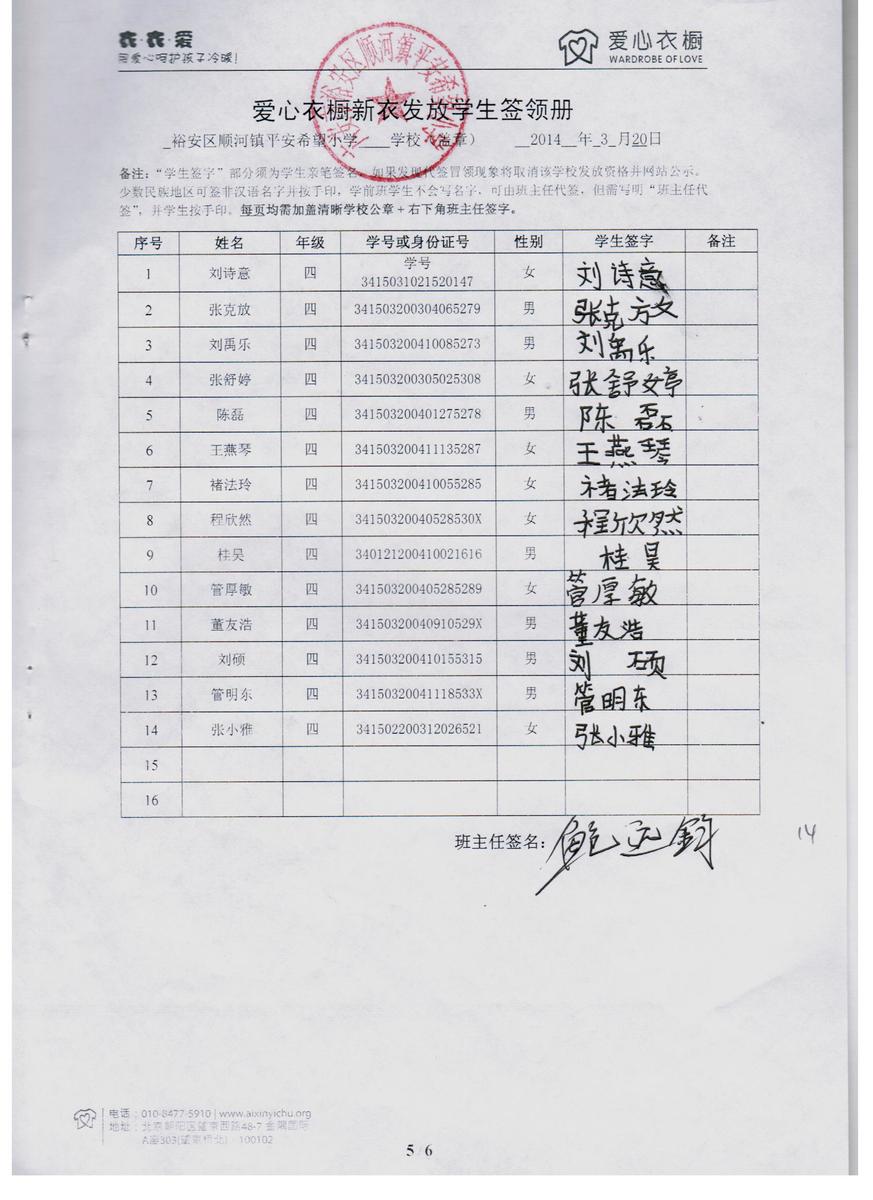 衣·衣·爱
用爱心呵护孩子冷暖！
爱心衣橱
WARDROBE OF LOVE
爱心衣橱新衣发放学生签领册
_裕安区顺河镇平安希望小学____学校（盖章） __2014__年_3_月20日
备注：“学生签字”部分须为学生亲笔签名，如果发现代签冒领现象将取消该学校发放资格并网站公示。
少数民族地区可签非汉语名字并按手印，学前班学生不会写名字，可由班主任代签，但需写明“班主任代
签”，并学生按手印。每页均需加盖清晰学校公章+右下角班主任签字。
序号 姓名 年级 学号或身份证号 性别 学生签字 备注
1 刘诗意 四 学号 3415031021520147 女 刘诗意
2 张克放 四 341503200304065279 男 张克放
3 刘禹乐 四 341503200410085273 男 刘禹乐
4 张舒婷 四 341503200305025308 女 张舒婷
5 陈磊 四 341503200401275278 男 陈磊
6 王燕琴 四 341503200411135287 女 王燕琴
7 褚法玲 四 341503200410055285 女 褚法玲
8 程欣然 四 34150320040528530X 女 程欣然
9 桂昊 四 340121200410021616 男 桂昊
10 管厚敏 四 341503200405285289 女 管厚敏
11 董友浩 四 34150320040910529X 男 董友浩
12 刘硕 四 341503200410155315 男 刘硕
13 管明东 四 34150320041118533X 男 管明东
14 张小雅 四 341502200312026521 女 张小雅
15
16
班主任签名：
14
电话：010-8477-5910 | www.aixinyichu.org
地址：北京朝阳区望京西路48-7 金隅国际
A座303(望京桥北) 100102
5 / 6